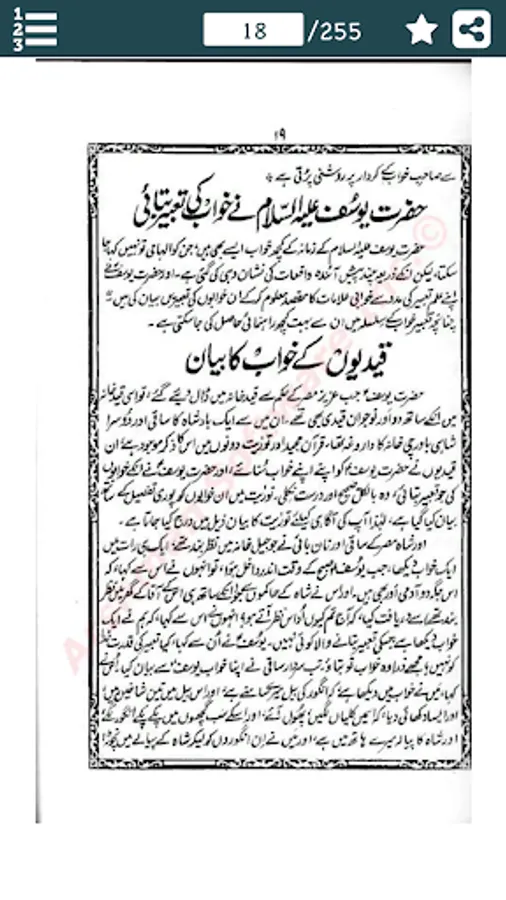 1
2
3
18 /255
۱۹
سے صاحبِ خواب کے کردار پر روشنی پڑتی ہے ٭
حضرت یوسف علیہ السلام نے خواب کی تعبیر بتائی
حضرت یوسف علیہ السلام کے زمانہ کے کچھ خواب ایسے بھی ہیں جن کو الہامی تو نہیں کہا جا
سکتا، لیکن انکے ذریعہ آئندہ واقعات کی نشان دہی کی گئی ہے۔ اور حضرت یوسفؑ نے
اپنے علم تعبیر کی مدد سے خوابی علامات کا مقصد معلوم کر کے ان خوابوں کی تعبیریں بیان کی ہیں
چنانچہ تعبیر خواب کے سلسلہ میں ان سے بہت کچھ راہنمائی حاصل کی جا سکتی ہے۔
قیدیوں کے خواب کا بیان
حضرت یوسفؑ جب عزیز مصر کے حکم سے قید خانہ میں ڈال دئیے گئے، تو اسی قید خانہ
میں انکے ساتھ دو اور نوجوان قیدی بھی تھے۔ ان میں سے ایک بادشاہ کا ساقی اور دوسرا
شاہی باورچی خانہ کا داروغہ تھا۔ قرآن مجید اور توریت دونوں میں اس کا ذکر موجود ہے ان
قیدیوں نے حضرت یوسفؑ کو اپنے اپنے خواب سنائے، اور حضرت یوسفؑ نے انکے خوابوں
کی جو تعبیر بتائی، وہ بالکل صحیح اور درست نکلی۔ توریت میں ان خوابوں کو پوری تفصیل کے ساتھ
بیان کیا گیا ہے، لہٰذا آپ کی آگاہی کیلئے توریت کا بیان ذیل میں درج کیا جاتا ہے۔
اور شاہ مصر کے ساقی اور نان بائی نے جو جیل خانہ میں نظر بند تھے، ایک ہی رات میں
ایک خواب دیکھا، جب یوسفؑ صبح کے وقت اندر داخل ہوا، تو انہوں نے اس سے کہا، کہ
اس جگہ دو آدمی اور بھی ہیں۔ اور اس نے شاہ کے حاکموں سے جو انکے ساتھ ہی اس کے آقا کے گھر میں نظر
بند تھے، دریافت کیا، کہ آج تم کیوں اداس نظر آتے ہو؟ انہوں نے اس سے کہا، کہ ہم نے ایک
خواب دیکھا ہے جسکی تعبیر بتانے والا کوئی نہیں، یوسفؑ نے ان سے کہا، کیا تعبیر کی قدرت خدا
کو نہیں؟ مجھے ذرا وہ خواب تو بتاؤ، تب سردار ساقی نے اپنا خواب یوسفؑ سے بیان کیا، اس نے
کہا، میں نے خواب میں دیکھا ہے کہ انگور کی بیل میرے سامنے ہے، اور اس بیل میں تین شاخیں ہیں
اور ایسا دکھائی دیا، کہ اسمیں کلیاں لگیں، پھول آئے، اور اسکے سب گچھوں میں پکے پکے انگور لگے
اور شاہ کا پیالہ میرے ہاتھ میں ہے، اور میں نے ان انگوروں کو لیکر شاہ کے پیالے میں نچوڑا